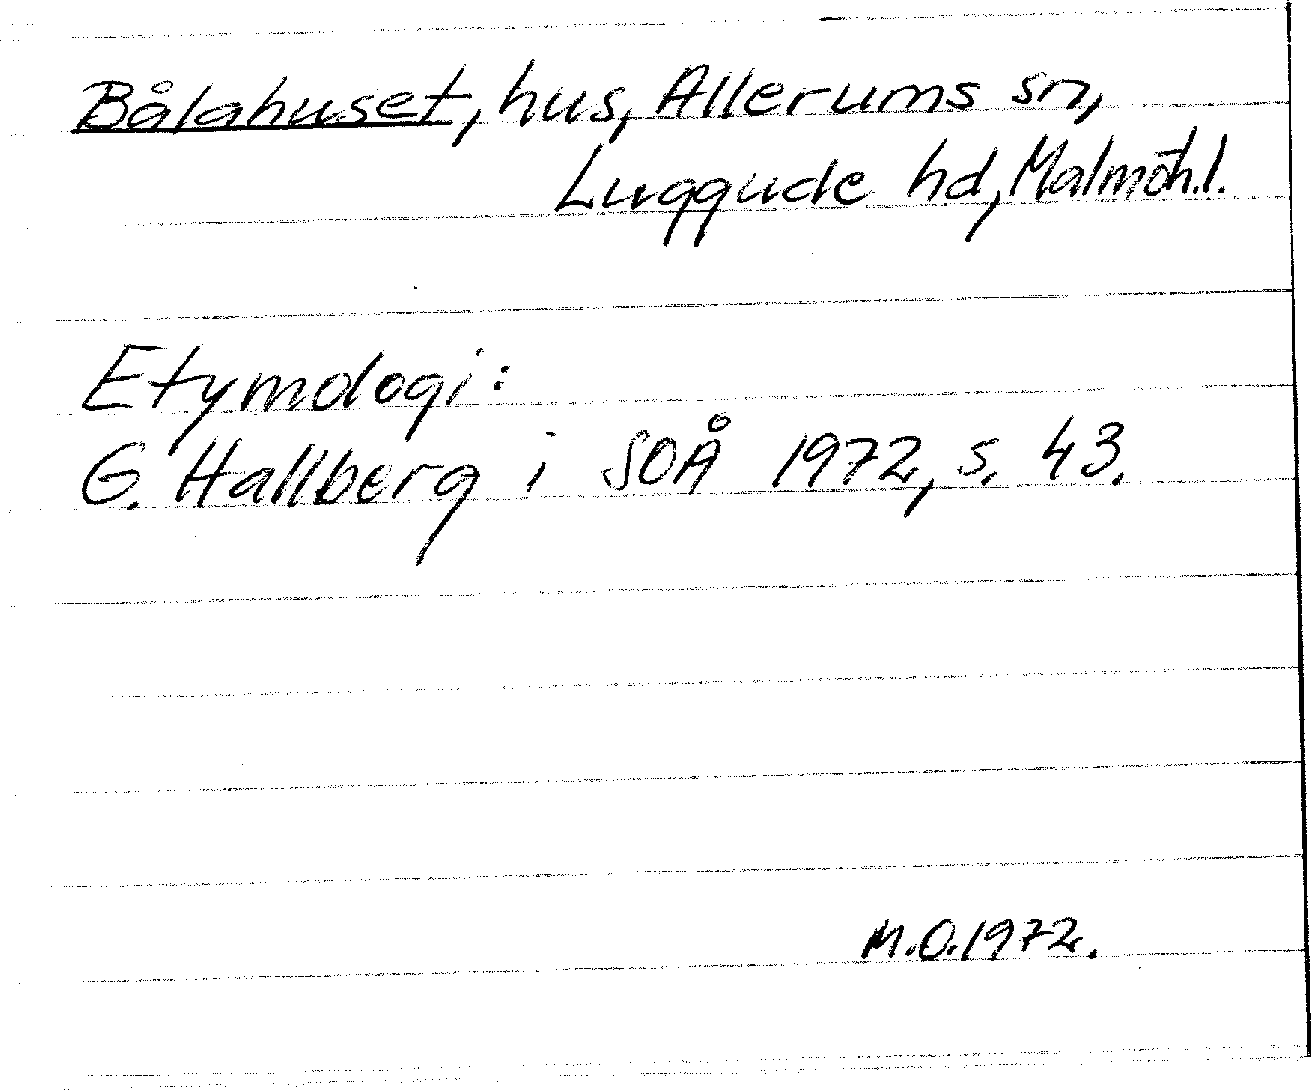 Bålahuset, hus, Allerums sn,
Luggude hd, Malmöh.l.
Etymologi:
G. Hallberg i SOÅ 1972, s. 43.
M.O.1972.